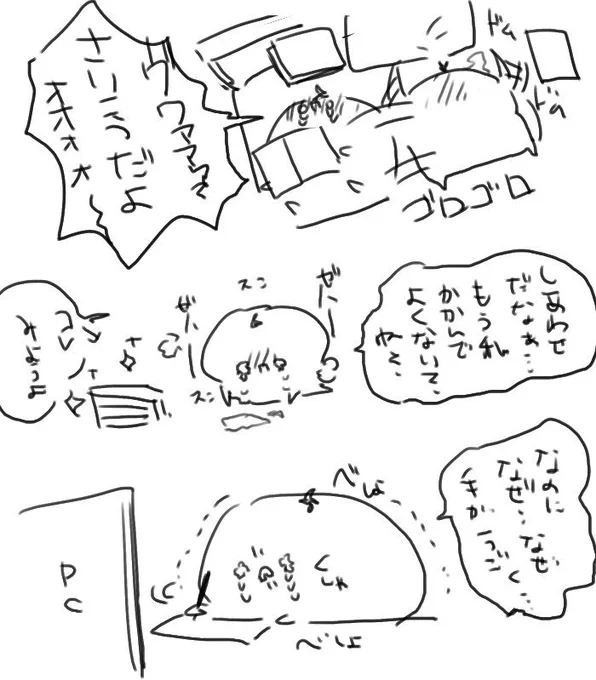 ドム
ドム
ゴロゴロ
グワァァァ
さいこうだよ
オオオオ
しあわせ
だなぁ…
もう私
かかんで
よくないて…
ゼハー
ゼハー
スン
スン
コレ
みようよ
なのに
なぜ…なぜ
手がうごく…
べしょ
くしゃ
べしょ
PC